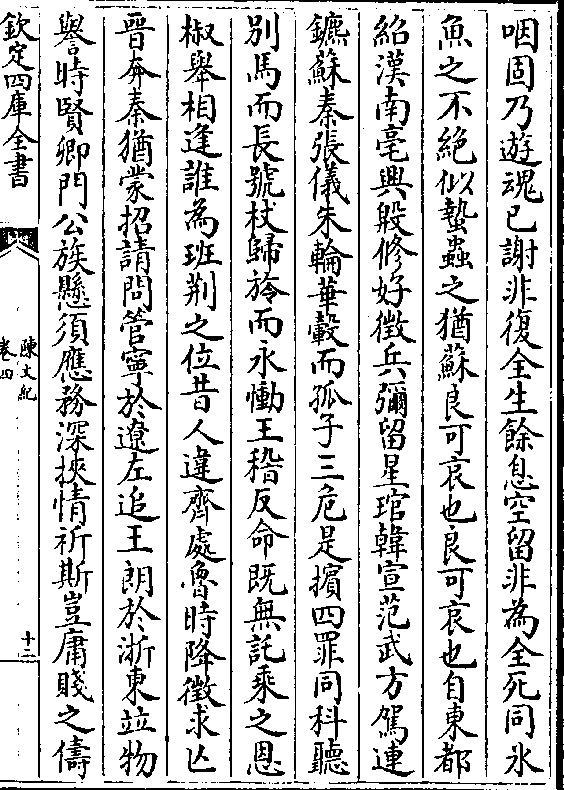 咽固乃遊魂已謝非復全生餘息空留非為全死同氷
魚之不絶似蟄蟲之猶蘇良可哀也良可哀也自東都
紹漢南亳興殷修好徵兵彌留星琯韓宣范武方駕連
鑣蘇秦張儀朱輪華轂而孤子三危是擯四罪同科聽
别馬而長號杖歸旍而永慟王稽反命既無託乘之恩
椒舉相逢誰為班荆之位昔人違齊處魯時降徵求亾
晉奔秦猶蒙招請問管寧於遼左追王朗於浙東竝物
譽時賢卿門公族懸須應務深挾情祈斯豈庸賤之儔
欽定四庫全書
陳文紀
卷四
十二